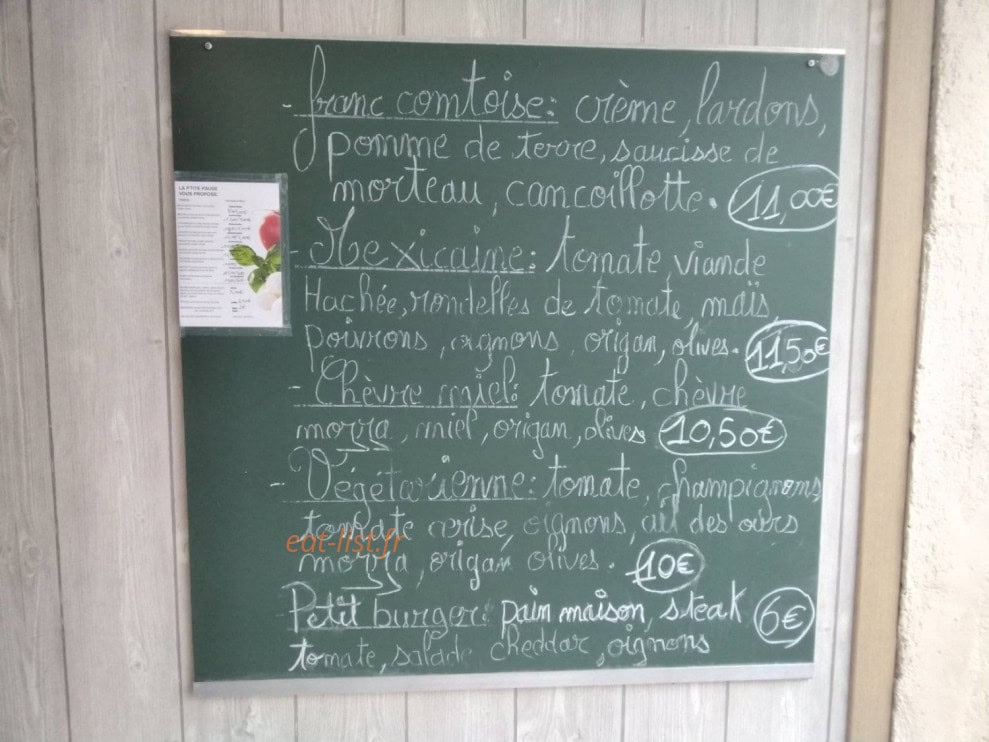 - franc comtoise: crème, lardons,
pomme de terre, saucisse de
morteau, cancoillotte. 11,00€
- Mexicaine: tomate viande
Hachée, rondelles de tomate, maïs,
poivrons, oignons, origan, olives. 11,50€
- Chèvre miel: tomate, chèvre
mozza, miel, origan, olives 10,50€
- Végétarienne: tomate, champignons
tomate cerise, oignons, ail des ours
mozza, origan olives. 10€
Petit burger: pain maison, steak 6€
tomate, salade cheddar, oignons
LA P'TITE PAUSE
VOUS PROPOSE
eat-list.fr